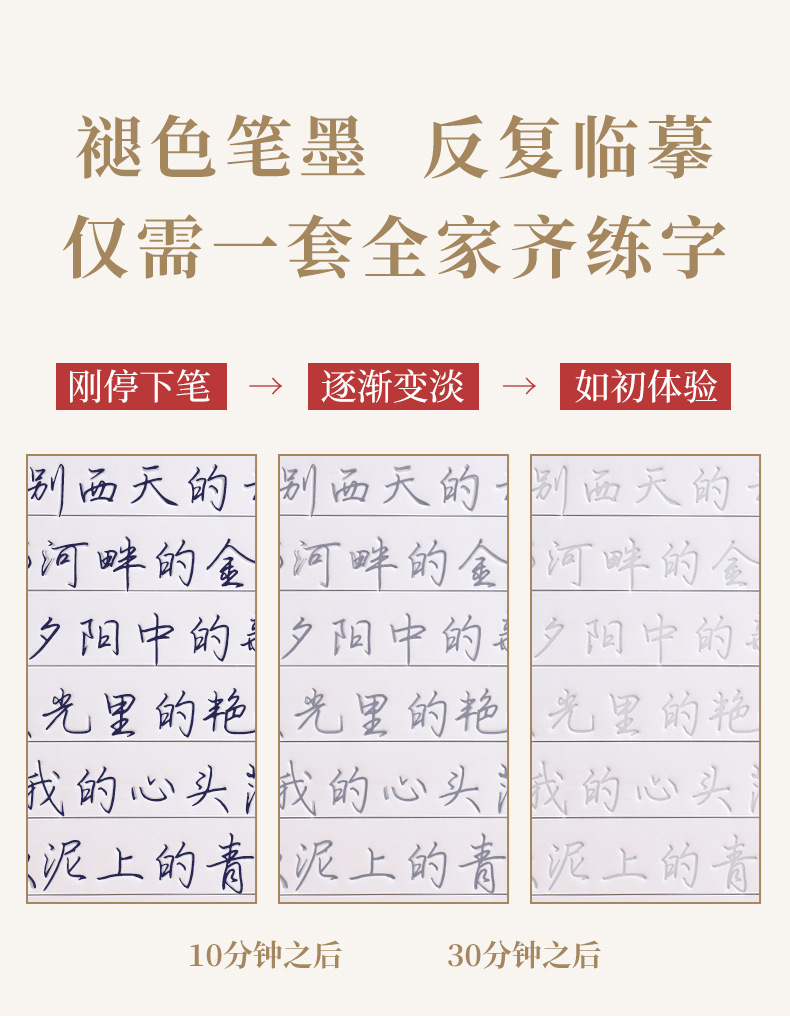 褪色笔墨 反复临摹
仅需一套全家齐练字
刚停下笔 → 逐渐变淡 → 如初体验
别西天的
河畔的金
夕阳中的
光里的艳
我的心头
泥上的青
别西天的
河畔的金
夕阳中的
光里的艳
我的心头
泥上的青
别西天的
河畔的金
夕阳中的
光里的艳
我的心头
泥上的青
10分钟之后 30分钟之后